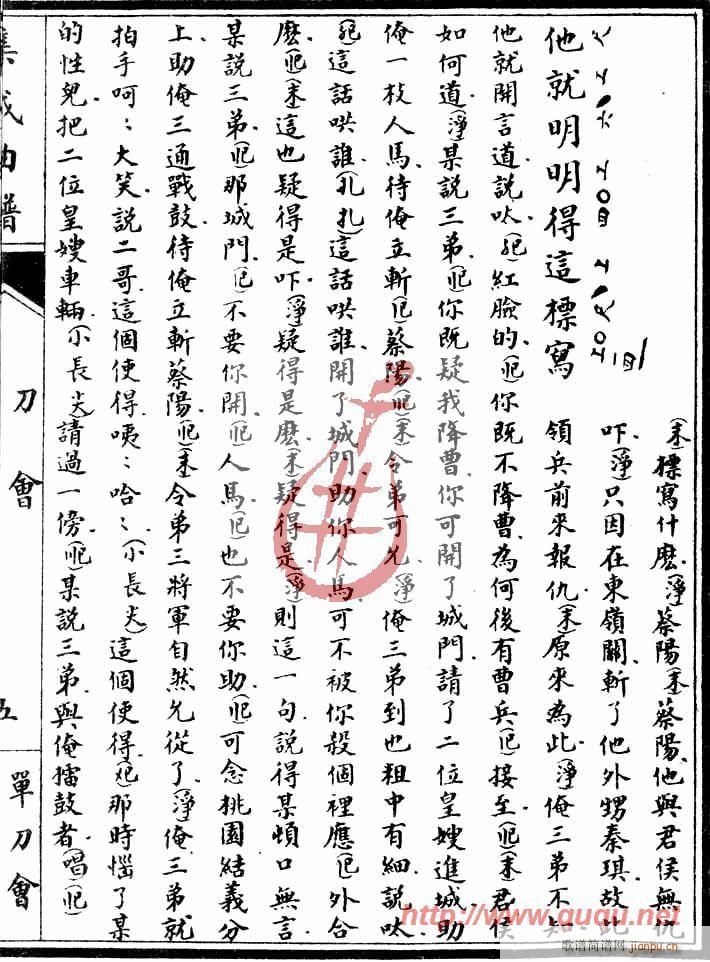 他就明明得這標寫
(末)標寫什麽.(淨)蔡陽(末)蔡陽.他與君侯無仇
吓.(淨)只因在東嶺關.斬了他外甥秦琪.故此
領兵前來報仇.(末)原來為此.(淨)俺三弟不知.
他就開言道.說呔.紅臉的.你既不降曹.為何後有曹兵接至.(末)君侯
如何道.(淨)某說三弟.你既疑我降曹.你可開了城門.請了二位皇嫂進城.助
俺一枝人馬.待俺立斬蔡陽.(末)令弟可允.(淨)俺三弟到也粗中有細.說呔.
這話哄誰.這話哄誰.開了城門.助你人馬.可不被你殺個裡應外合
麽.(末)這也疑得是吓.(淨)疑得是麽.(末)疑得是.(淨)則這一句.說得某頓口無言
某說三弟.那城門.不要你開.人馬也不要你助.可念桃園結義分
上.助俺三通戰鼓.待俺立斬蔡陽.(末)令弟三將軍自然允從了.(淨)俺三弟就
拍手呵呵大笑.說二哥.這個使得.咦咦哈哈.(小長尖)這個使得.那時惱了某
的性兒.把二位皇嫂車輛.(小長尖)請過一傍.某說三弟.與俺擂鼓者.(唱)
集成曲譜
刀會
五
單刀會
http://www.guqu.net
歌谱简谱网
jianpu.cn